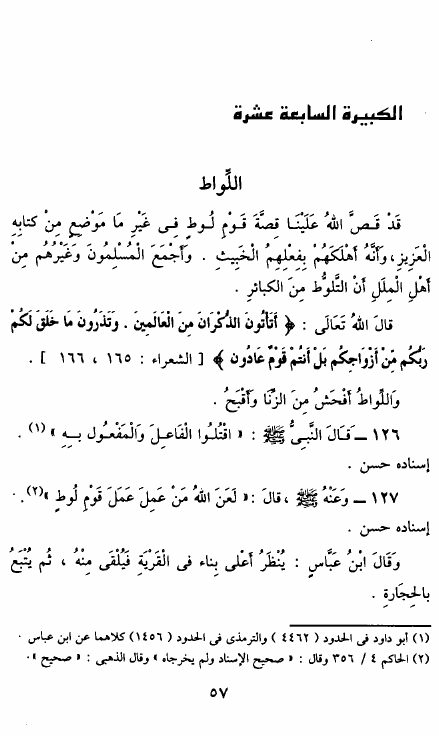 الكبيرة السابعة عشرة
اللِّواط
قَدْ قَصَّ اللهُ عَلَيْنَا قِصَّةَ قَوْمِ لُوطٍ فِى غَيْرِ مَا مَوْضِعٍ مِنْ كتابِهِ
الْعَزِيزِ، وَأَنَّهُ أَهْلَكَهُمْ بِفِعْلِهِمُ الْخَبِيثِ . وَأَجْمَعَ الْمُسْلِمُونَ وَغَيْرُهُم مِنْ
أَهْلِ الْمِلَلِ أَنَّ التَّلَوُّطَ مِنَ الكبائرِ .
قالَ اللهُ تَعَالَى : ﴿ أَتَأْتُونَ الذُّكْرَانَ مِنَ الْعَالَمِينَ . وَتَذَرُونَ مَا خَلَقَ لَكُمْ
رَبُّكُم مِّنْ أَزْوَاجِكُم بَلْ أَنتُمْ قَوْمٌ عَادُون ﴾ [ الشعراء : ١٦٥ ، ١٦٦ ] .
وَاللِّواطُ أَفْحَشُ مِنَ الزِّنَا وَأَقْبَحُ .
١٢٦ – قَالَ النَّبِىُّ ﷺ : « اقْتُلُوا الْفَاعِلَ وَالْمَفْعُولَ بِهِ » (١) .
إسناده حسن .
١٢٧ – وَعَنْهُ ﷺ ، قالَ : « لَعَنَ اللهُ مَنْ عَمِلَ عَمَلَ قَوْمِ لُوطٍ »(٢).
إسناده حسن .
وَقَالَ ابْنُ عَبَّاسٍ : يُنْظَرُ أَعْلى بِناء فى الْقَرْيَةِ فَيُلْقَى مِنْهُ ، ثُم يُتْبَعُ
بالحِجارةِ .
(١) أبو داود فى الحدود ( ٤٤٦٢ ) والترمذى فى الحدود ( ١٤٥٦) كلاهما عن ابن عباس .
(٢) الحاكم ٤ / ٣٥٦ وقال : « صحيح الإسناد ولم يخرجاه » وقال الذهبى : « صحيح » .
٥٧